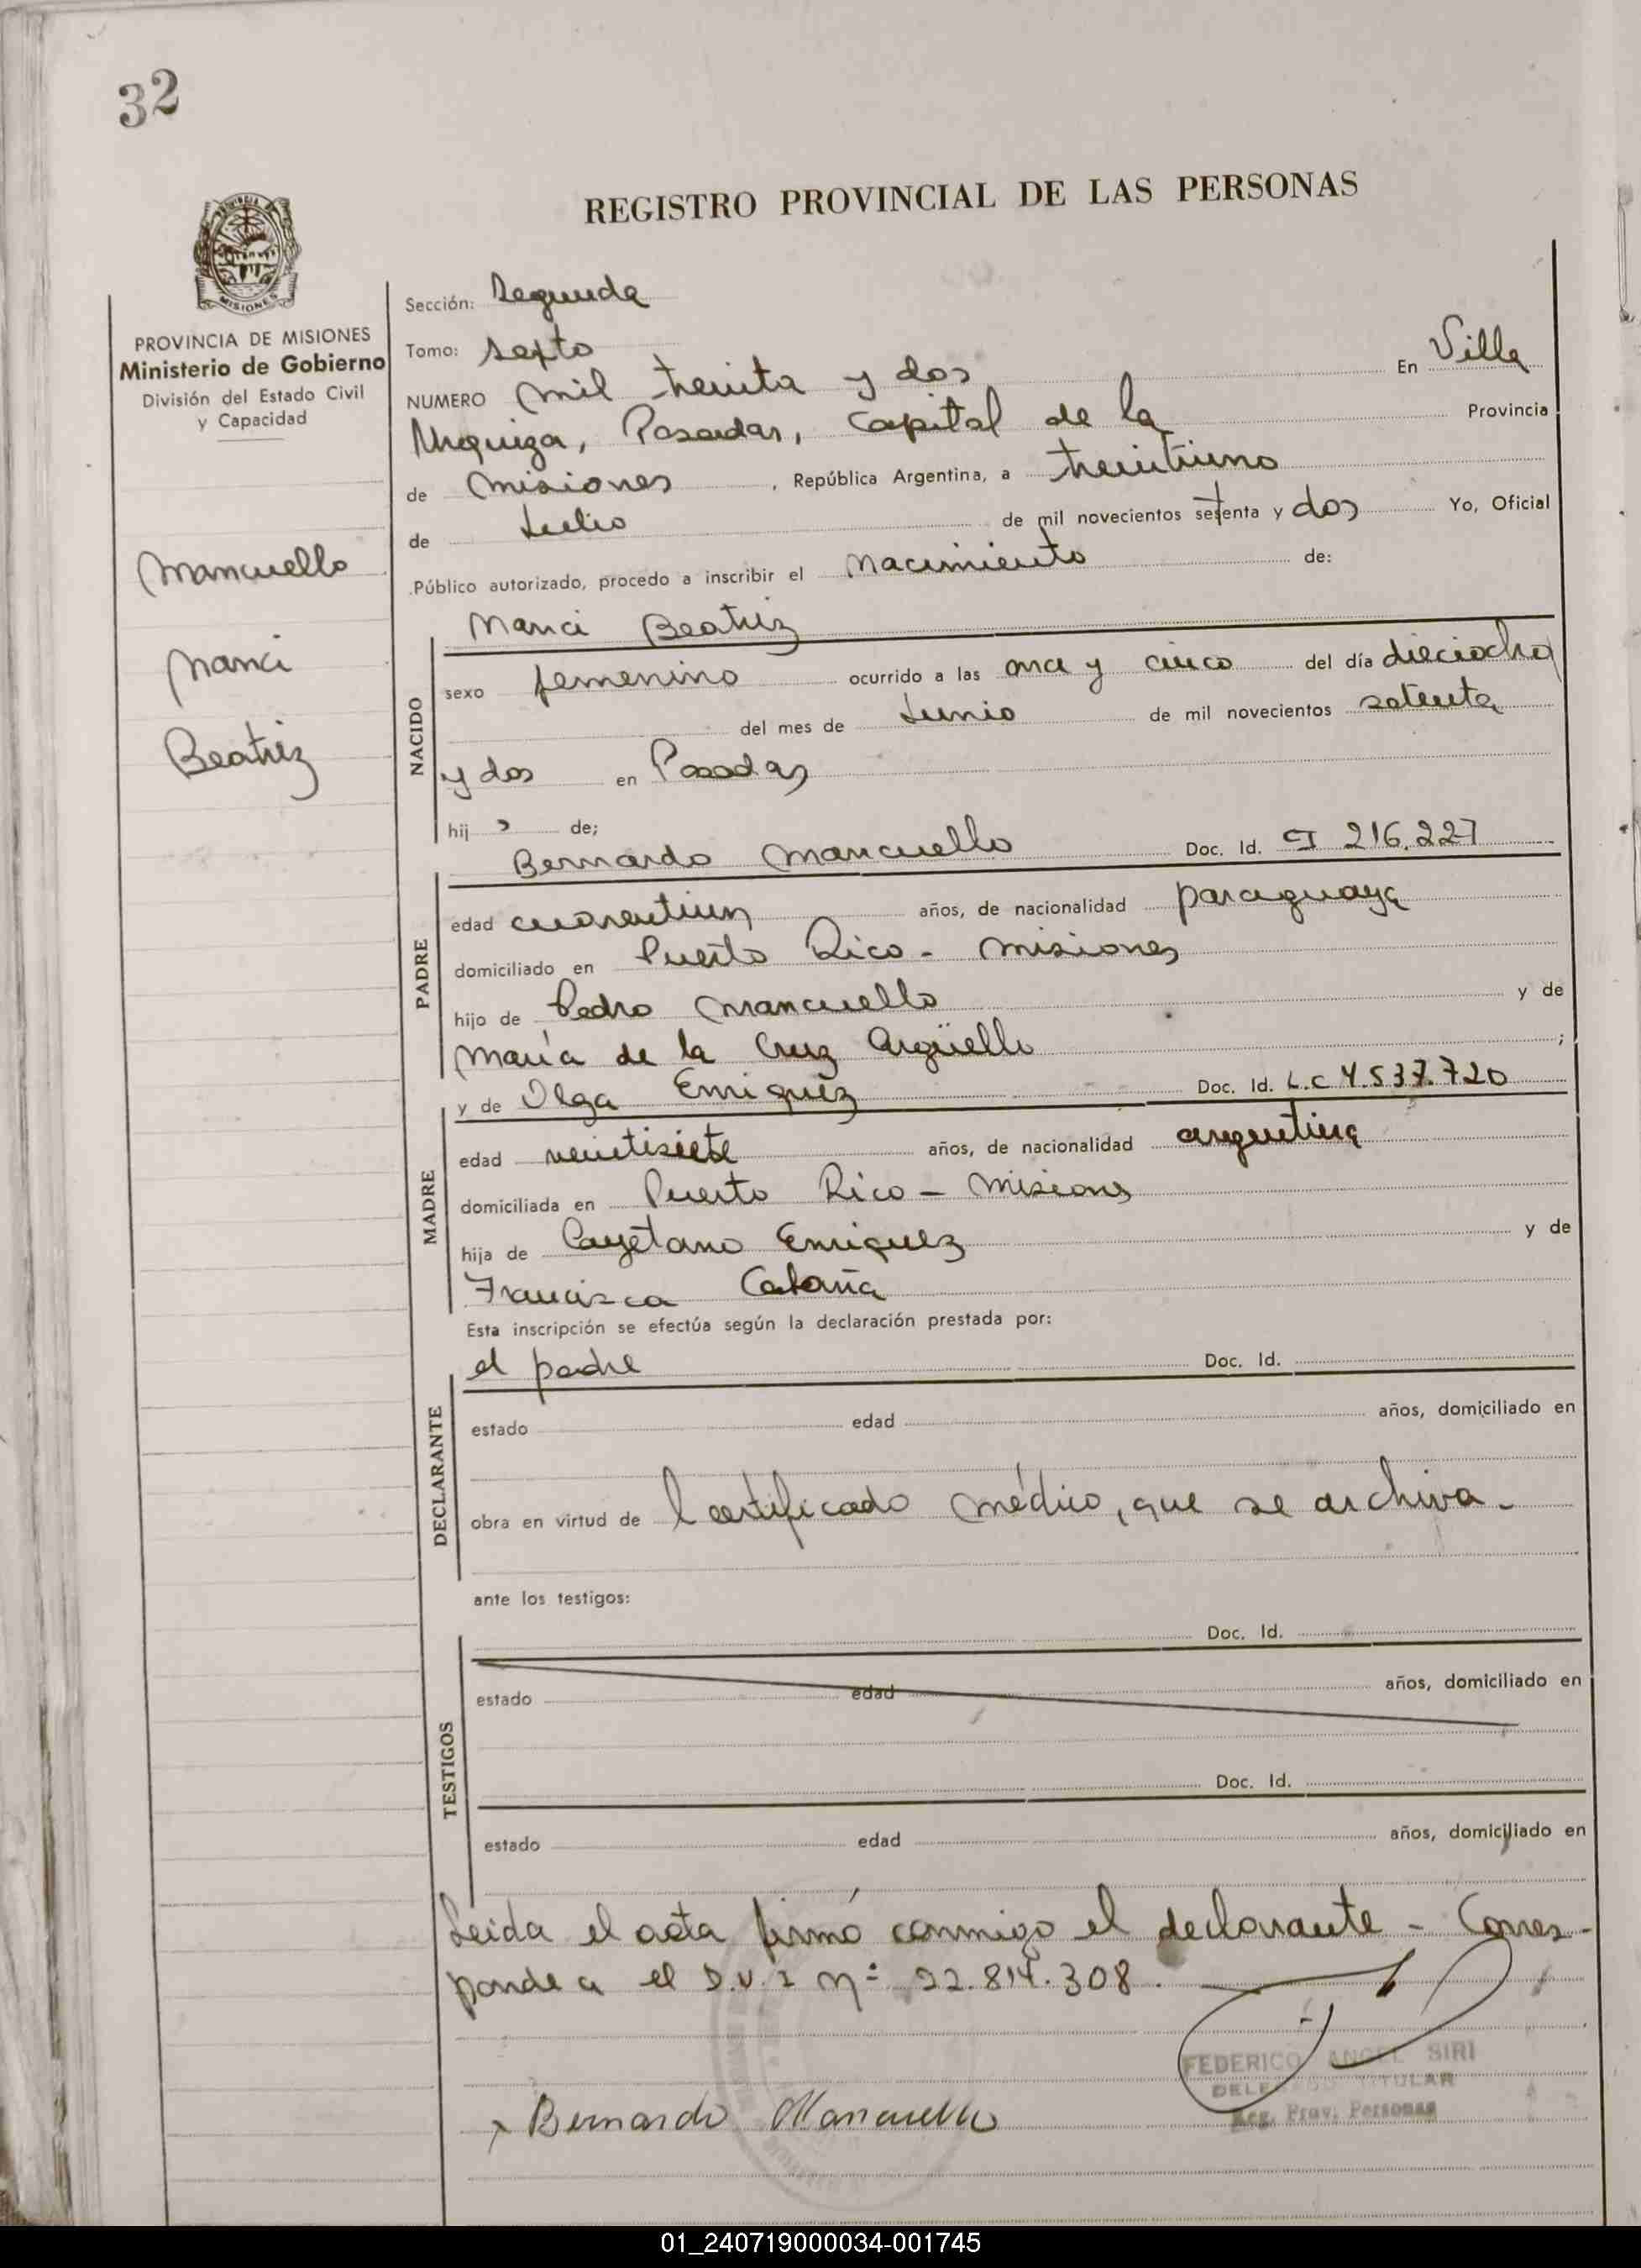 32
REGISTRO PROVINCIAL DE LAS PERSONAS
MISIONES
PROVINCIA DE MISIONES
Ministerio de Gobierno
División del Estado Civil
y Capacidad
Mancuello
Nanci
Beatriz
Sección: Segunda
Tomo: Septo
NUMERO mil treinta y dos En Villa
Urquiza, Posadas, Capital de la Provincia
de Misiones, República Argentina, a treintiuno
de Julio de mil novecientos setenta y dos Yo, Oficial
Público autorizado, procedo a inscribir el Nacimiento de:
Nanci Beatriz
NACIDO
sexo femenino ocurrido a las once y cinco del día dieciocho
del mes de Junio de mil novecientos setenta
y dos en Posadas
hij de;
Bernardo Mancuello Doc. Id. CI 216.227
PADRE
edad cuarentiun años, de nacionalidad paraguaya
domiciliado en Puerto Rico - Misiones
hijo de Pedro Mancuello y de
María de la Cruz Argüello ;
y de Olga Enriquez Doc. Id. L.C 4.537.720
MADRE
edad veintisiete años, de nacionalidad argentina
domiciliada en Puerto Rico - Misiones
hija de Cayetano Enriquez y de
Francisca
Esta inscripción se efectúa según la declaración prestada por:
el padre Doc. Id.
DECLARANTE
estado edad años, domiciliado en
obra en virtud de Certificado médico, que se archiva.
ante los testigos:
Doc. Id.
TESTIGOS
estado edad años, domiciliado en
Doc. Id.
estado edad años, domiciliado en
Leida el acta firmó conmigo el declarante - Corres-
ponde a el D.U.I Nº 22.814.308.
FEDERICO ANGEL SIRI
DELEGADO TITULAR
Reg. Prov. Personas
x Bernardo Mancuello
01_240719000034-001745